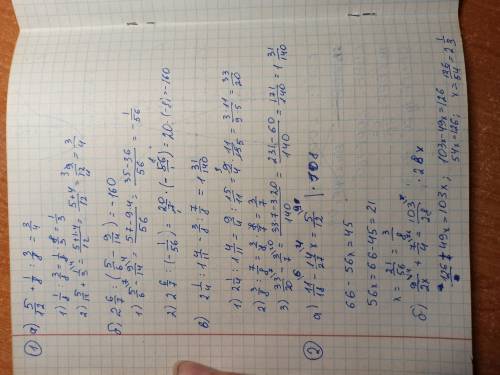 ① а) 5/12 + 1/8 : 3/8 = 3/4
1) 1/8 : 3/8 = 1/8 · 8/3 = 1/3
2) 5/12 + 1/3 = (5+4)/12 = 9/12 = 3/4
б) 2 6/7 : (5/8 - 9/14) = -160
1) 5/8 - 9/14 = (5·7-9·4)/56 = (35-36)/56 = -1/56
2) 2 6/7 : (-1/56) = 20/7 · (-56/1) = 20·(-8) = -160
в) 2 1/4 : 1 4/11 - 3/8 : 7/8 = 1 31/140
1) 2 1/4 : 1 4/11 = 9/4 : 15/11 = 9/4 · 11/15 = 3·11/4·5 = 33/20
2) 3/8 : 7/8 = 3/8 · 8/7 = 3/7
3) 33/20 - 3/7 = (33·7-3·20)/140 = (231-60)/140 = 171/140 = 1 31/140
② а) 11/18 - 14/27 x = 5/12 | ·108
66 - 56x = 45
56x = 66-45 = 21
x = 21/56 = 3/8
б) 9/2x + 7/4 = 103/28 · 28x
126 + 49x = 103x; 103x-49x=126
54x=126; x = 126/54 = 2 1/3